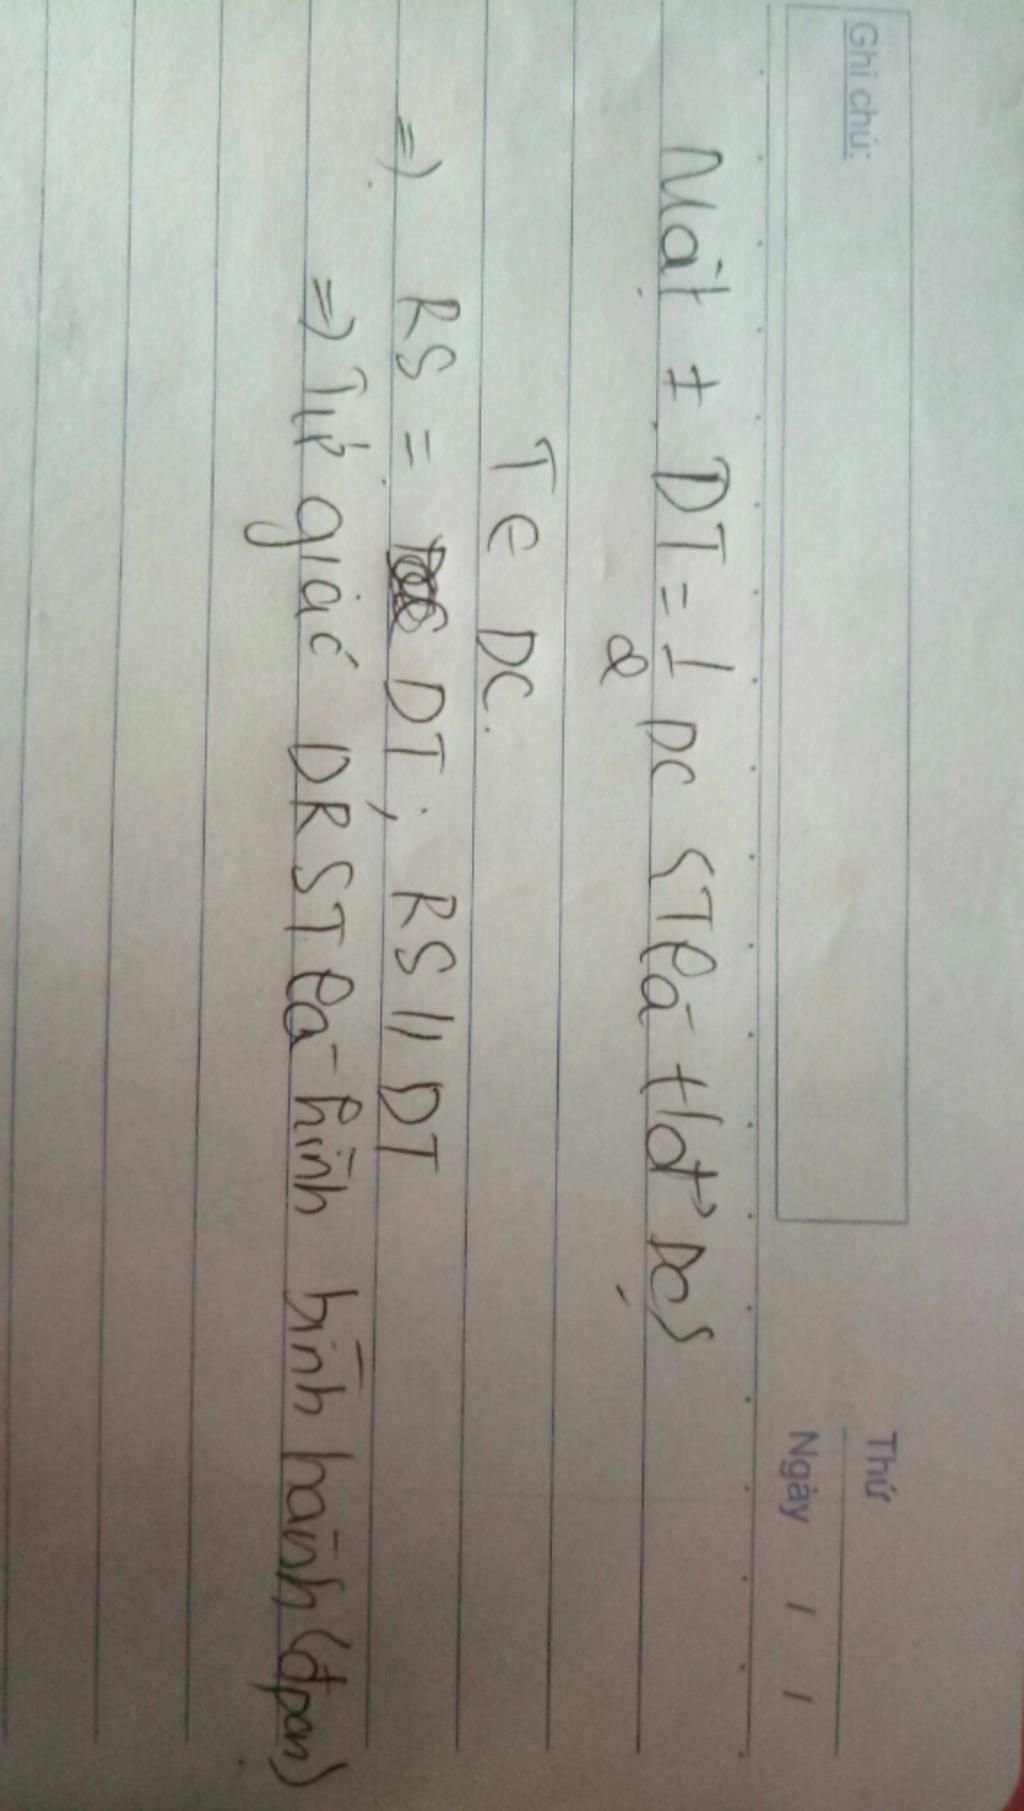 Ghi chú:
Thứ
Ngày / /
Mặt ± DT = 1/2 DC (T là tđ' DC)
T ∈ DC.
=> RS = DT; RS // DT
=> Tứ giác DRST là hình bình hành (đpcm)